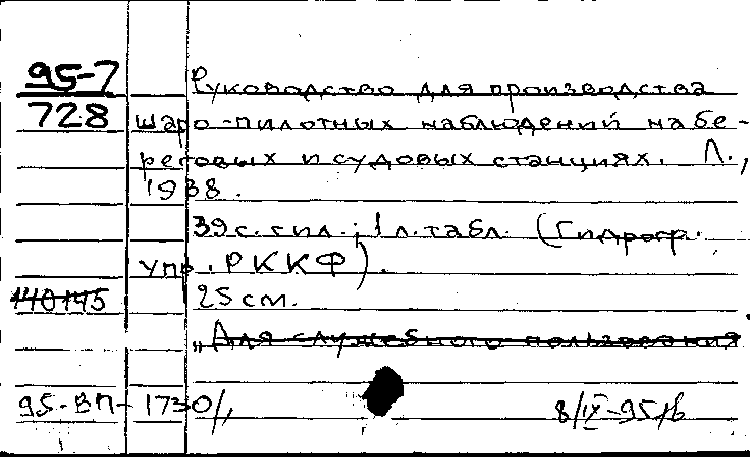 95-7
728
Руководство для производства
шаро-пилотных наблюдений на бе-
реговых и судовых станциях. Л.,
1938.
39 с. с ил.; 1 л. табл. (Гидрогр.
упр. РККФ).
140145
25 см.
„Для служебного пользования
95-ВП-1730/,
8/IX-95